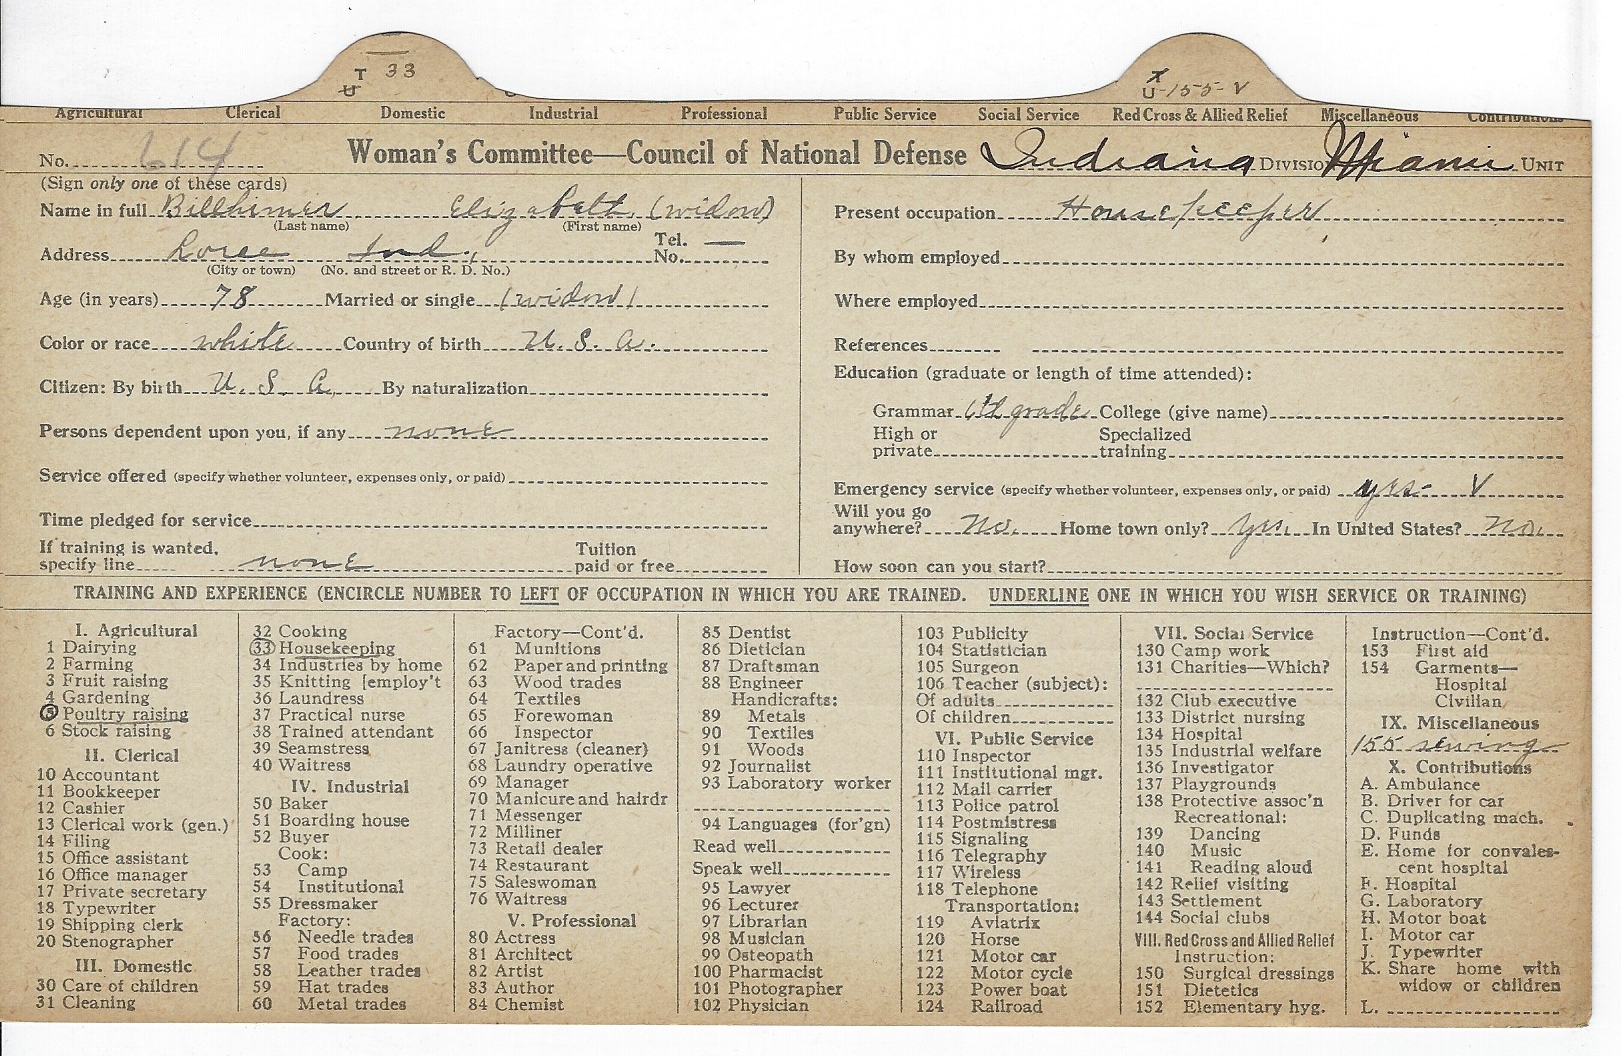 T 33
U
X
U-155-V
Agricultural Clerical Domestic Industrial Professional Public Service Social Service Red Cross & Allied Relief Miscellaneous Contributions
No. 614 Woman's Committee—Council of National Defense Indiana DIVISION Miami UNIT
(Sign only one of these cards)
Name in full Billhimer Elizabeth (widow)
(Last name) (First name)
Address Loree Ind., Tel. No. —
(City or town) (No. and street or R. D. No.)
Age (in years) 78 Married or single (widow)
Color or race white Country of birth U. S. A.
Citizen: By birth U. S. A. By naturalization
Persons dependent upon you, if any none
Service offered (specify whether volunteer, expenses only, or paid)
Time pledged for service
If training is wanted,
specify line none Tuition paid or free
Present occupation Housekeeper
By whom employed
Where employed
References
Education (graduate or length of time attended):
Grammar 6th grade College (give name)
High or private Specialized training
Emergency service (specify whether volunteer, expenses only, or paid) yes- V
Will you go
anywhere? No. Home town only? Yes. In United States? No.
How soon can you start?
TRAINING AND EXPERIENCE (ENCIRCLE NUMBER TO LEFT OF OCCUPATION IN WHICH YOU ARE TRAINED. UNDERLINE ONE IN WHICH YOU WISH SERVICE OR TRAINING)
I. Agricultural
1 Dairying
2 Farming
3 Fruit raising
4 Gardening
5 Poultry raising
6 Stock raising
II. Clerical
10 Accountant
11 Bookkeeper
12 Cashier
13 Clerical work (gen.)
14 Filing
15 Office assistant
16 Office manager
17 Private secretary
18 Typewriter
19 Shipping clerk
20 Stenographer
III. Domestic
30 Care of children
31 Cleaning
32 Cooking
33 Housekeeping
34 Industries by home
35 Knitting [employ't
36 Laundress
37 Practical nurse
38 Trained attendant
39 Seamstress
40 Waitress
IV. Industrial
50 Baker
51 Boarding house
52 Buyer
Cook:
53 Camp
54 Institutional
55 Dressmaker
Factory:
56 Needle trades
57 Food trades
58 Leather trades
59 Hat trades
60 Metal trades
Factory—Cont'd.
61 Munitions
62 Paper and printing
63 Wood trades
64 Textiles
65 Forewoman
66 Inspector
67 Janitress (cleaner)
68 Laundry operative
69 Manager
70 Manicure and hairdr
71 Messenger
72 Milliner
73 Retail dealer
74 Restaurant
75 Saleswoman
76 Waitress
V. Professional
80 Actress
81 Architect
82 Artist
83 Author
84 Chemist
85 Dentist
86 Dietician
87 Draftsman
88 Engineer
Handicrafts:
89 Metals
90 Textiles
91 Woods
92 Journalist
93 Laboratory worker
94 Languages (for'gn)
Read well
Speak well
95 Lawyer
96 Lecturer
97 Librarian
98 Musician
99 Osteopath
100 Pharmacist
101 Photographer
102 Physician
103 Publicity
104 Statistician
105 Surgeon
106 Teacher (subject):
Of adults
Of children
VI. Public Service
110 Inspector
111 Institutional mgr.
112 Mail carrier
113 Police patrol
114 Postmistress
115 Signaling
116 Telegraphy
117 Wireless
118 Telephone
Transportation:
119 Aviatrix
120 Horse
121 Motor car
122 Motor cycle
123 Power boat
124 Railroad
VII. Social Service
130 Camp work
131 Charities—Which?
132 Club executive
133 District nursing
134 Hospital
135 Industrial welfare
136 Investigator
137 Playgrounds
138 Protective assoc'n
Recreational:
139 Dancing
140 Music
141 Reading aloud
142 Relief visiting
143 Settlement
144 Social clubs
VIII. Red Cross and Allied Relief
Instruction:
150 Surgical dressings
151 Dietetics
152 Elementary hyg.
Instruction—Cont'd.
153 First aid
154 Garments—
Hospital
Civilian
IX. Miscellaneous
155 sewing
X. Contributions
A. Ambulance
B. Driver for car
C. Duplicating mach.
D. Funds
E. Home for convales-
cent hospital
F. Hospital
G. Laboratory
H. Motor boat
I. Motor car
J. Typewriter
K. Share home with
widow or children
L.